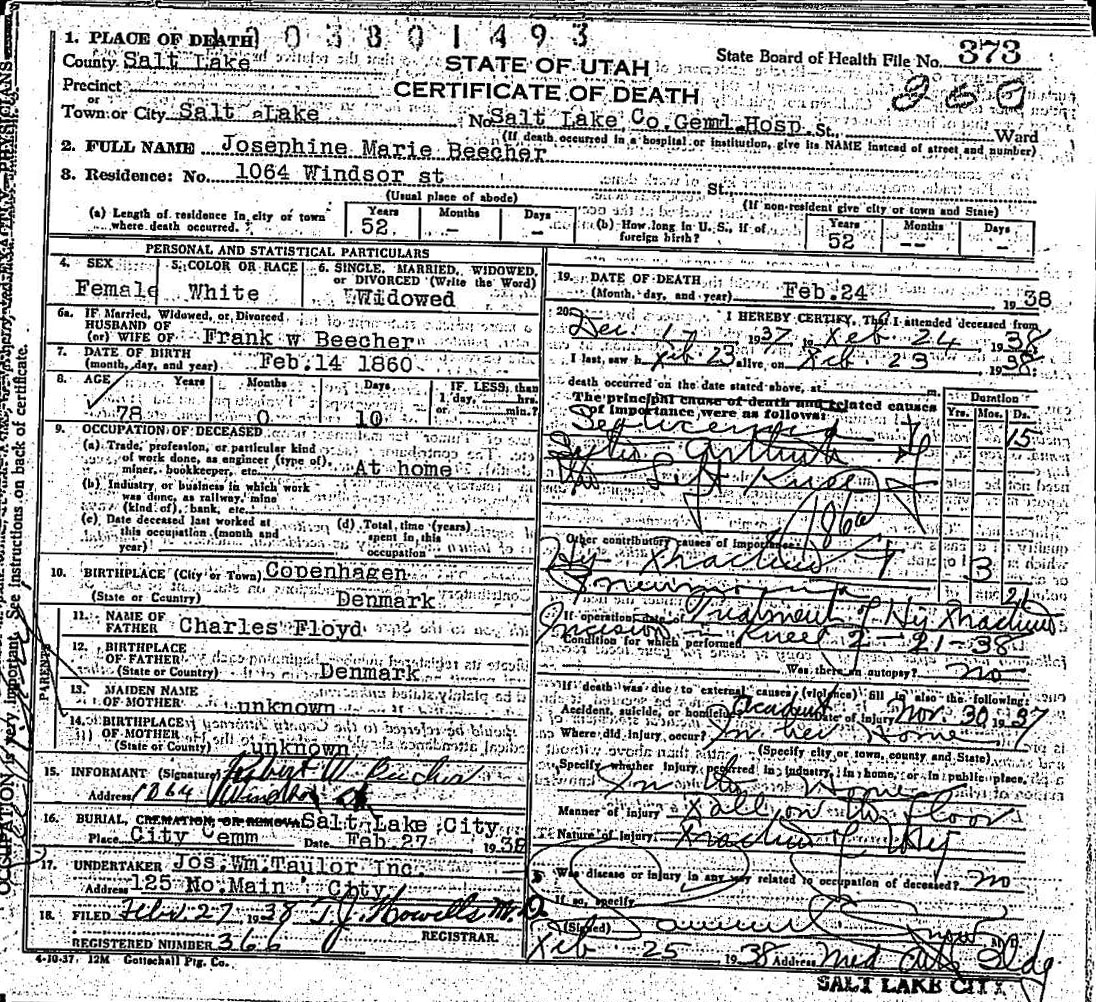 1. PLACE OF DEATH 1003801493
County Salt Lake
STATE OF UTAH
State Board of Health File No. 373
Precinct
CERTIFICATE OF DEATH
260
or
Town or City Salt Lake No. Salt Lake Co. Genrl. Hosp. St. Ward
(If death occurred in a hospital or institution, give its NAME instead of street and number)
2. FULL NAME Josephine Marie Beecher
3. Residence: No. 1064 Windsor st St.
(Usual place of abode)
(If non-resident give city or town and State)
(a) Length of residence in city or town where death occurred. Years 52 Months - Days -
(b) How long in U. S., if of foreign birth? Years 52 Months -- Days -
PERSONAL AND STATISTICAL PARTICULARS
4. SEX Female
5. COLOR OR RACE White
6. SINGLE, MARRIED, WIDOWED, or DIVORCED (Write the Word) Widowed
6a. IF Married, Widowed, or Divorced
HUSBAND OF
(or) WIFE OF Frank w Beecher
7. DATE OF BIRTH
(month, day, and year) Feb. 14 1860
8. AGE Years 78 Months 0 Days 10 IF LESS than 1 day, hrs. or min.?
9. OCCUPATION OF DECEASED
(a) Trade, profession, or particular kind
of work done, as engineer (type of),
miner, bookkeeper, etc. At home
(b) Industry or business in which work
was done, as railway, mine
(kind of), bank, etc.
(c) Date deceased last worked at
this occupation (month and
year)
(d) Total time (years)
spent in this
occupation
10. BIRTHPLACE (City or Town) Copenhagen
(State or Country) Denmark
PARENTS
11. NAME OF
FATHER Charles Floyd
12. BIRTHPLACE
OF FATHER
(State or County) Denmark
13. MAIDEN NAME
OF MOTHER unknown
14. BIRTHPLACE
OF MOTHER
(State or County) unknown
15. INFORMANT (Signature) Robert W. Beecher
Address 1064 Windsor St
16. BURIAL, CREMATION, OR REMOVAL Salt Lake City
Place City Cemm Date Feb. 27 1938
17. UNDERTAKER Jos. Wm. Taylor Inc.
Address 125 No. Main City
18. FILED Feb. 27 1938 T. J. Howells M. D.
REGISTRAR.
REGISTERED NUMBER 366
4-10-37 12M Gottschall Ptg. Co.
19. DATE OF DEATH
(Month, day, and year) Feb. 24 1938
20. I HEREBY CERTIFY, That I attended deceased from
Dec. 17 1937 to Feb 24 1938
I last saw h alive on Feb 23 1938
death occurred on the date stated above, at m.
The principal cause of death and related causes
of importance were as follows:
Duration
Yrs. Mos. Ds.
Septicemia 15
Septic Arthritis
Left Knee
186a
Other contributory causes of importance:
Hip Fracture 3
Pneumonia
Treatment of Hip Fracture
If operation, date of
Incision Knee 2-21-38
Condition for which performed
Was there an autopsy? no
If death was due to external causes (violence) fill in also the following:
Accident, suicide, or homicide? Accident Date of injury Nov. 30 1937
Where did injury occur? In her Home
(Specify city or town, county and State)
Specify whether injury occurred in industry, in home, or in public place.
In the Home
Manner of injury Fall on the floor
Nature of injury Fracture of Hip
Was disease or injury in any way related to occupation of deceased? no
If so, specify
(Signed) M. D.
Feb 25 1938 Address Med Arts Bldg
SALT LAKE CITY
OCCUPATION is very important. See instructions on back of certificate.
PHYSICIANS